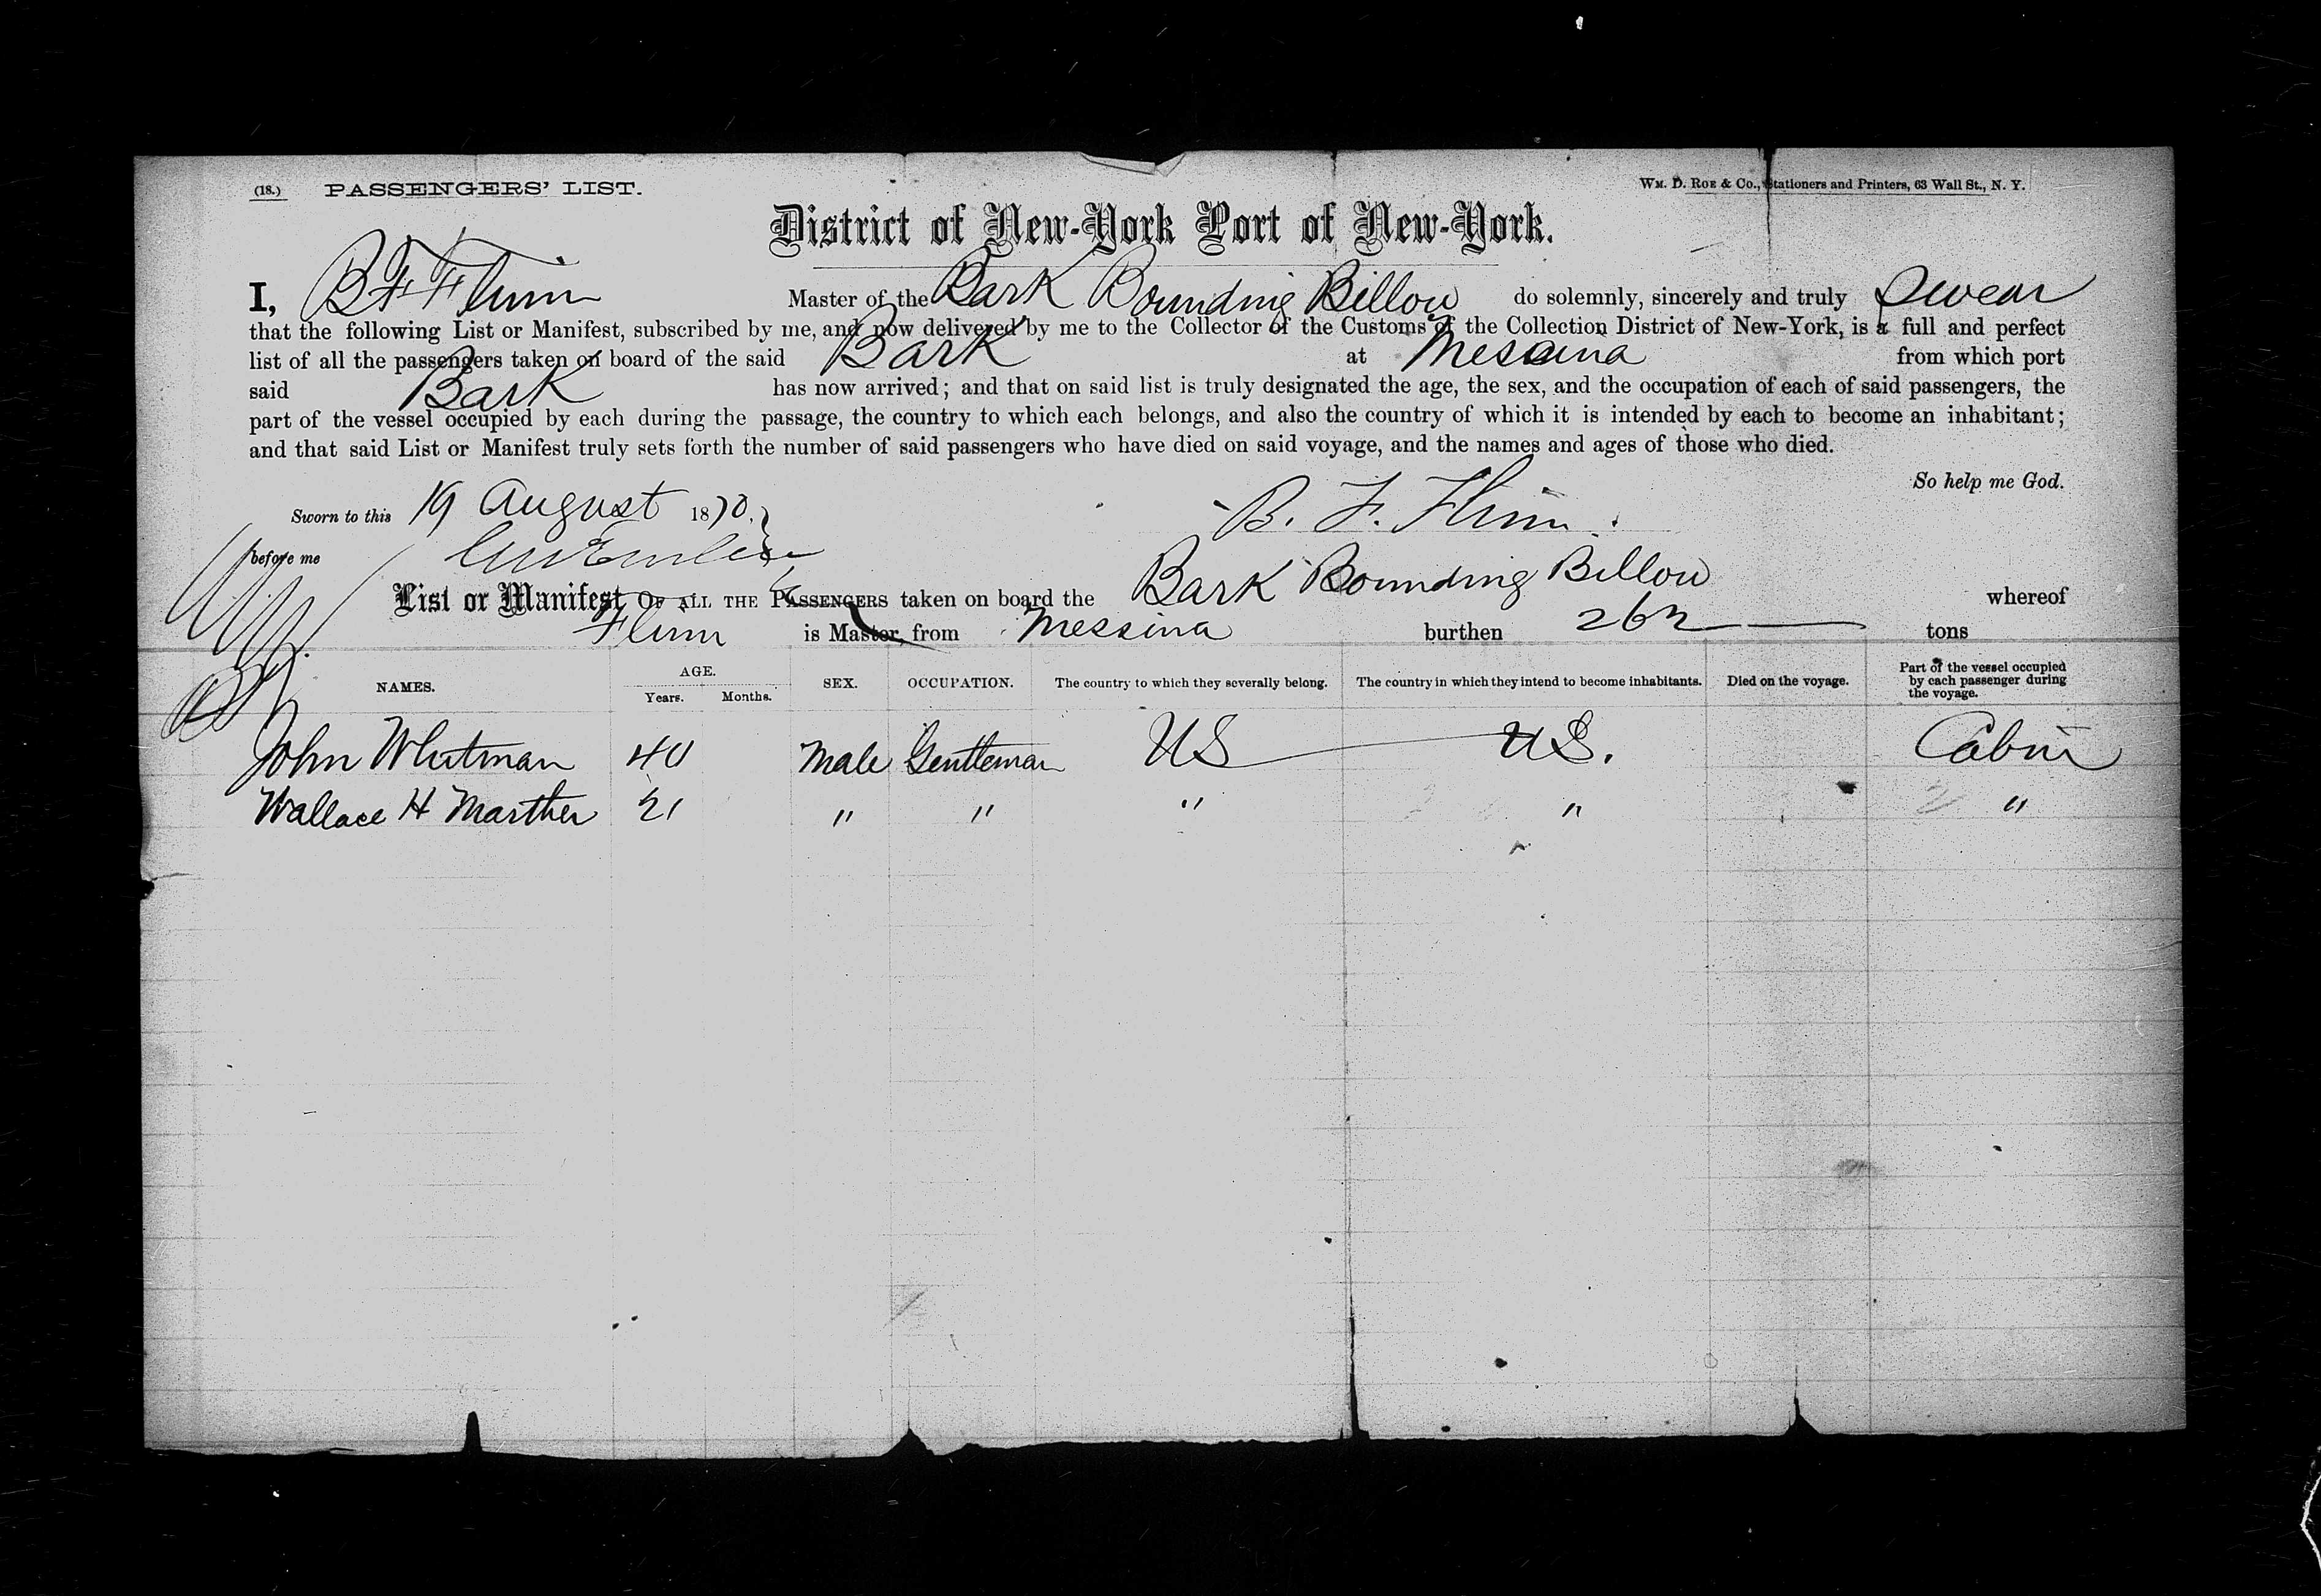 (18.) PASSENGERS' LIST.
Wm. D. Roe & Co., Stationers and Printers, 63 Wall St., N. Y.
District of New-York Port of New-York.
I, B F Flinn Master of the Bark Bounding Billow do solemnly, sincerely and truly Swear
that the following List or Manifest, subscribed by me, and now delivered by me to the Collector of the Customs of the Collection District of New-York, is a full and perfect
list of all the passengers taken on board of the said Bark at Messina from which port
said Bark has now arrived; and that on said list is truly designated the age, the sex, and the occupation of each of said passengers, the
part of the vessel occupied by each during the passage, the country to which each belongs, and also the country of which it is intended by each to become an inhabitant;
and that said List or Manifest truly sets forth the number of said passengers who have died on said voyage, and the names and ages of those who died.
So help me God.
Sworn to this 19 August 1870. B. F. Flinn.
before me
List or Manifest OF ALL THE PASSENGERS taken on board the Bark Bounding Billow whereof
Flinn is Master, from Messina burthen 262 tons
NAMES. AGE. Years. Months. SEX. OCCUPATION. The country to which they severally belong. The country in which they intend to become inhabitants. Died on the voyage. Part of the vessel occupied by each passenger during the voyage.
John Whitman 40 Male Gentleman US US. Cabin
Wallace H 21 " " " " "